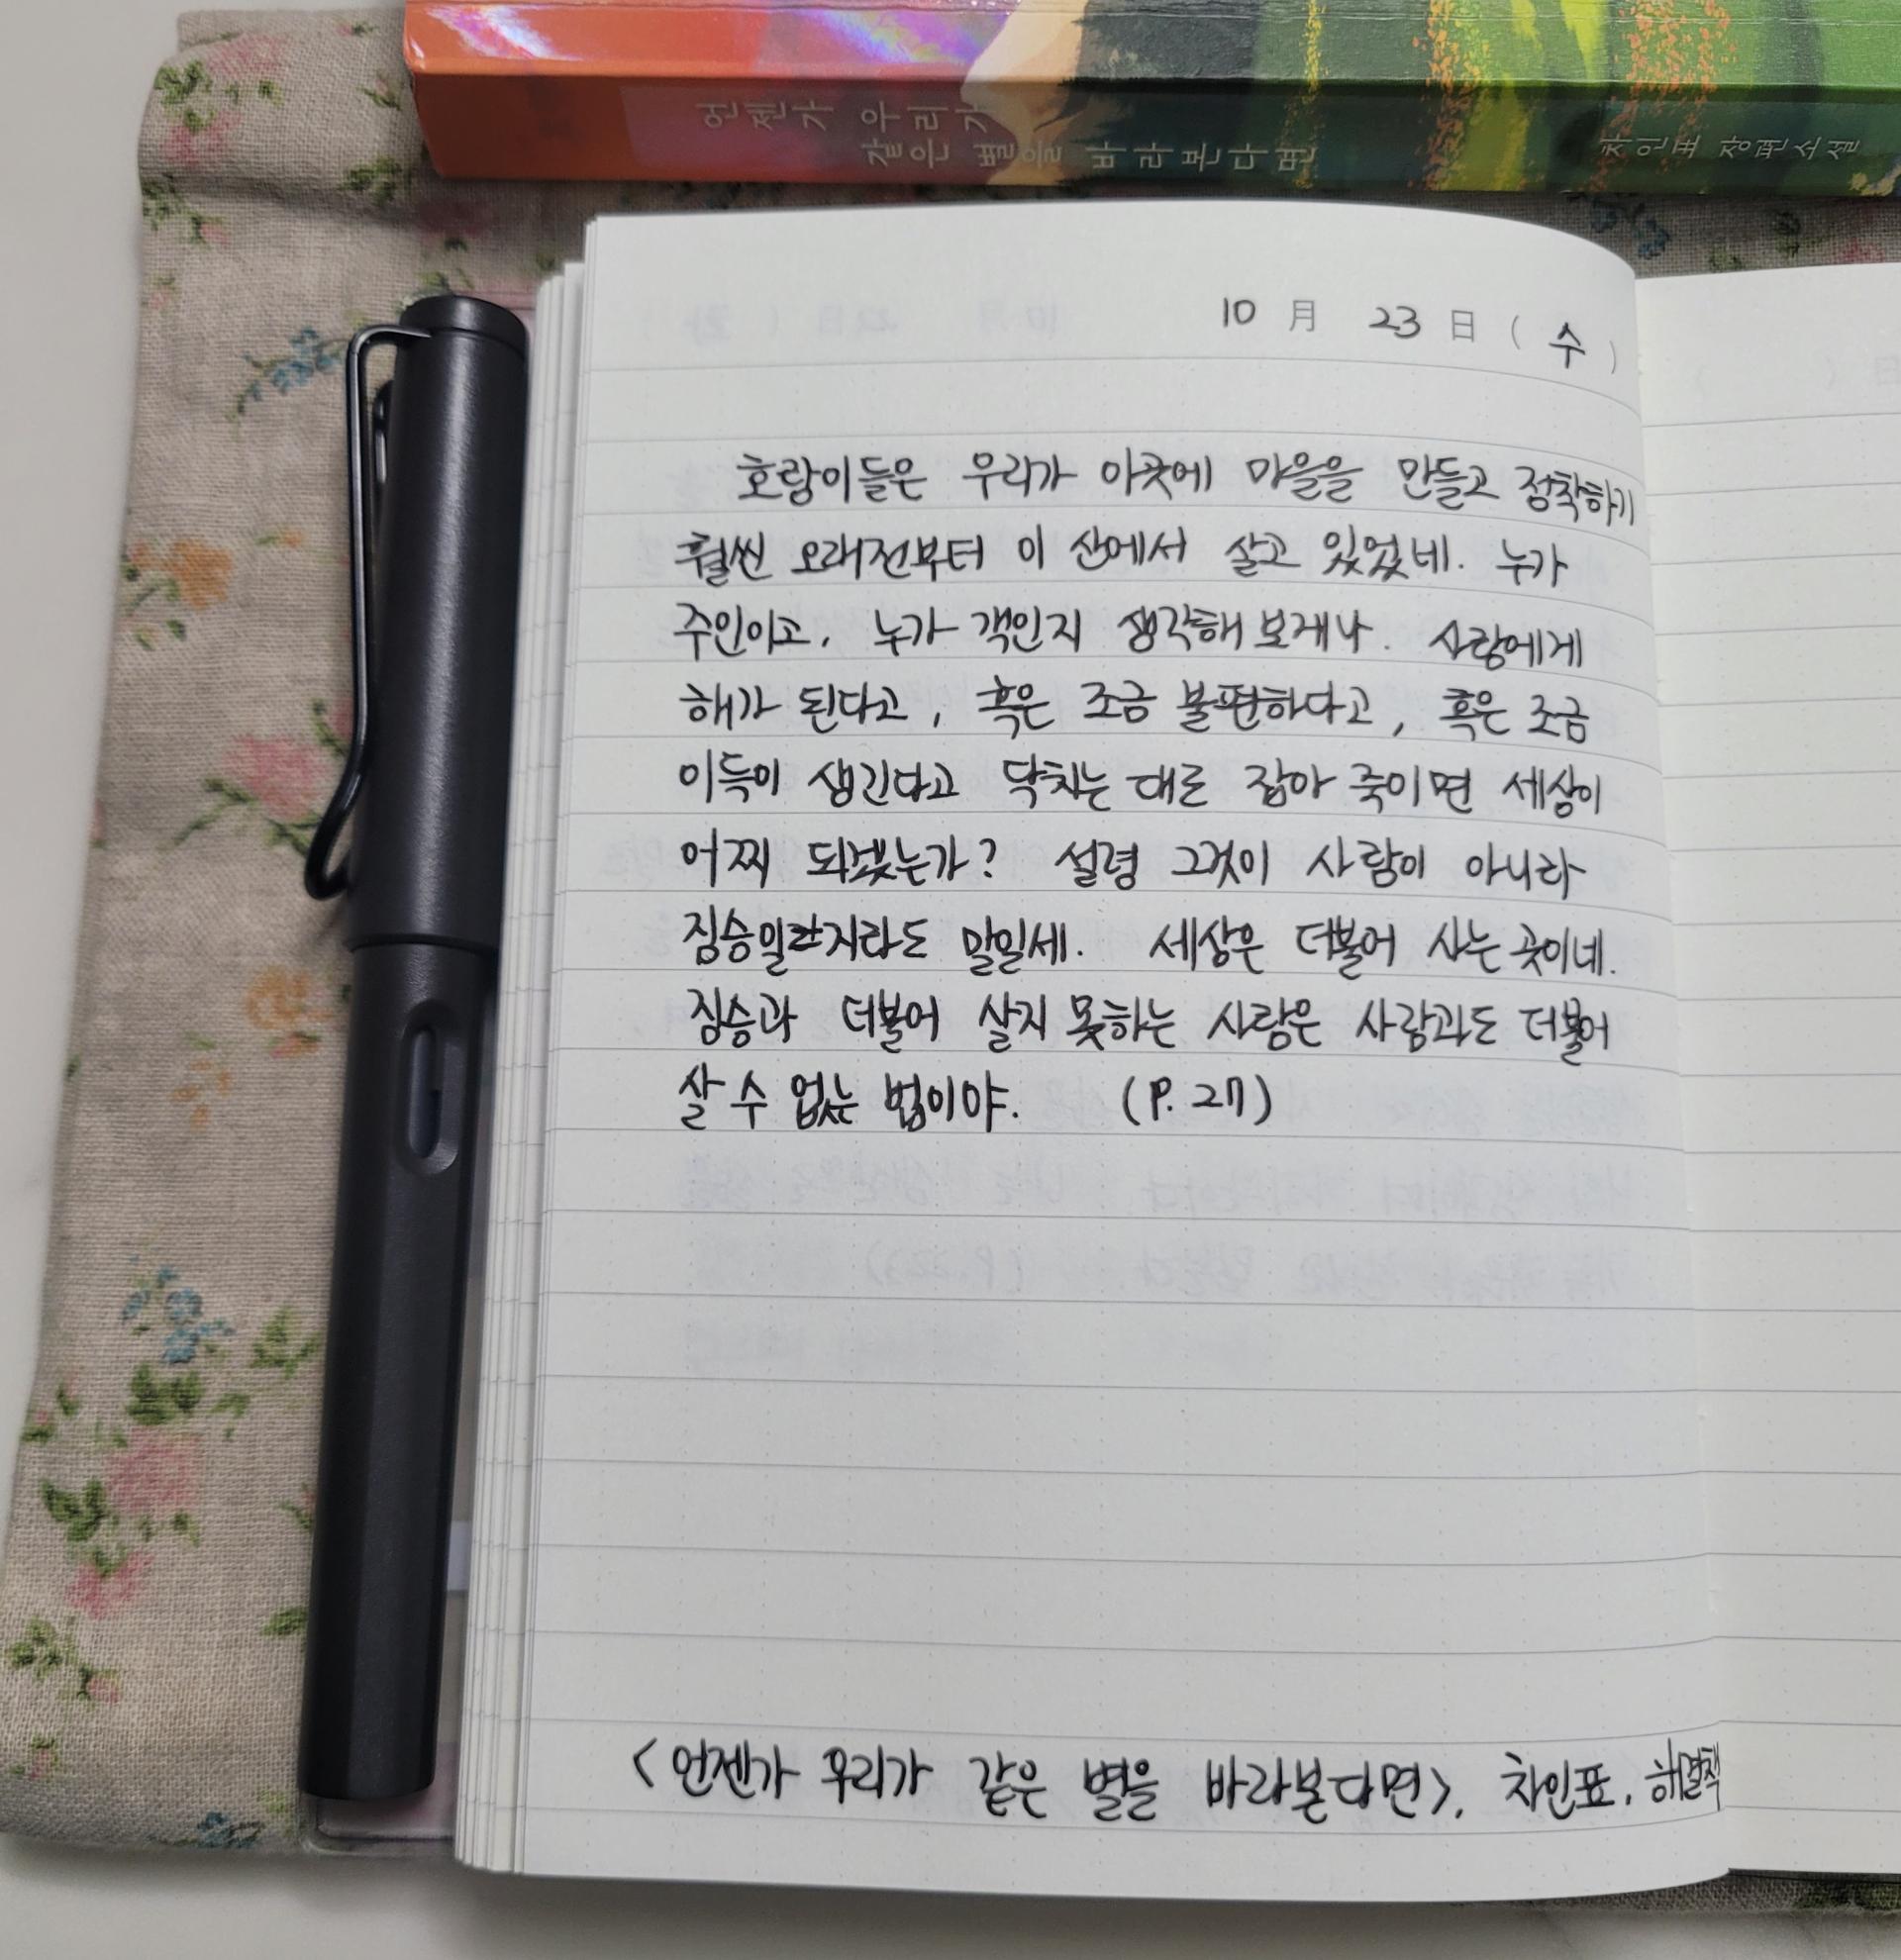 언젠가 우리가
같은 별을 바라본다면
차인표 장편소설
10 月 23 日 ( 수 )
호랑이들은 우리가 이곳에 마을을 만들고 정착하기
훨씬 오래전부터 이 산에서 살고 있었네. 누가
주인이고, 누가 객인지 생각해 보게나. 사람에게
해가 된다고, 혹은 조금 불편하다고, 혹은 조금
이득이 생긴다고 닥치는 대로 잡아 죽이면 세상이
어찌 되겠는가? 설령 그것이 사람이 아니라
짐승일란지라도 말일세. 세상은 더불어 사는 곳이네.
짐승과 더불어 살지 못하는 사람은 사람과도 더불어
살 수 없는 법이야. (P. 27)
<언젠가 우리가 같은 별을 바라본다면>, 차인표, 해결책